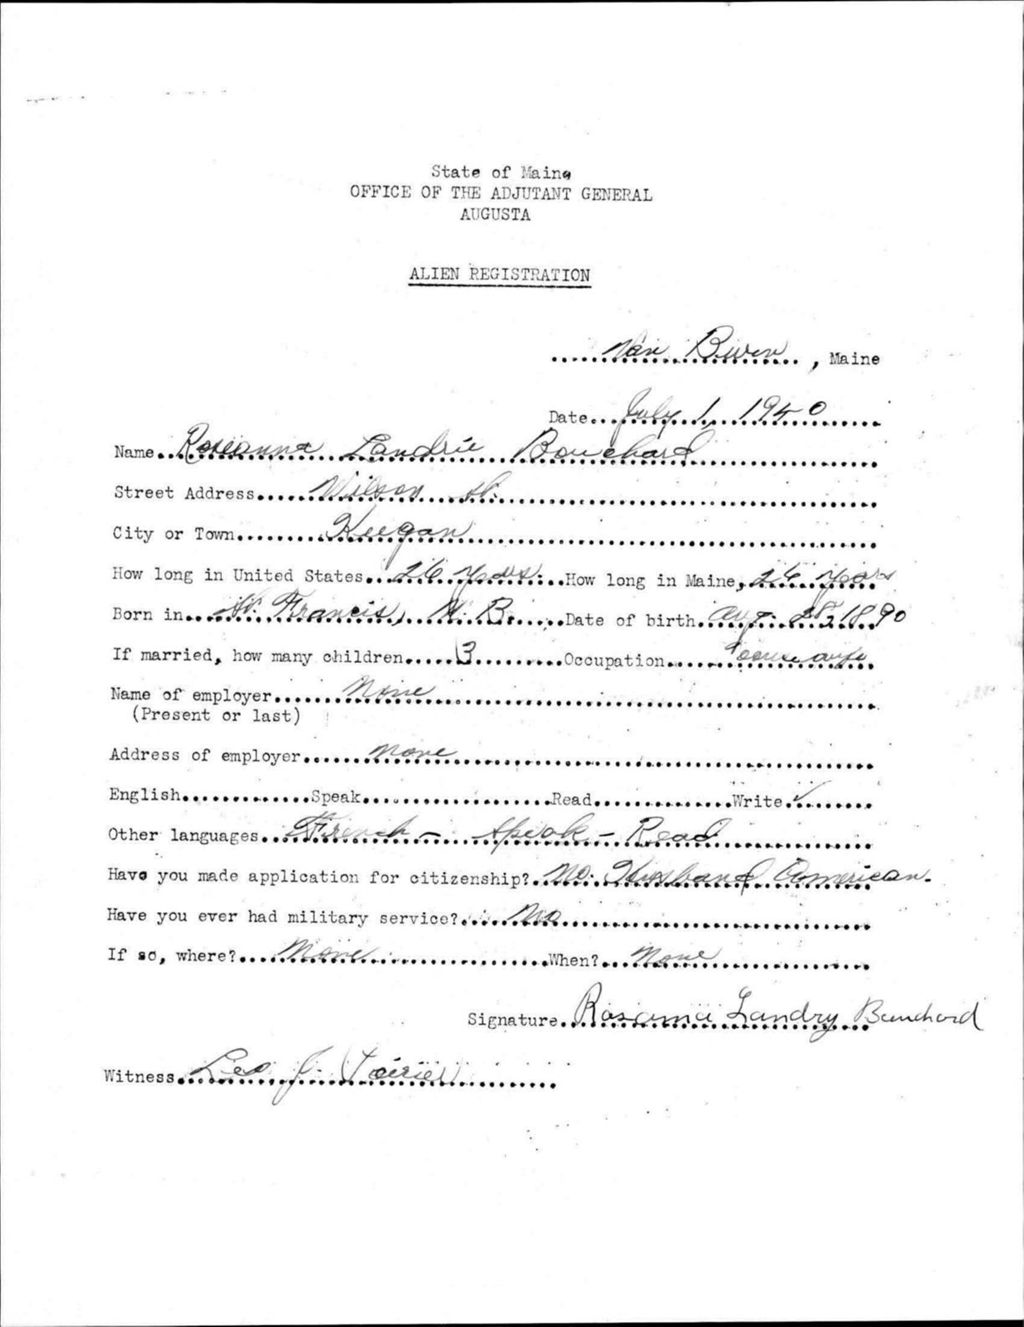 State of Maine
OFFICE OF THE ADJUTANT GENERAL
AUGUSTA
ALIEN REGISTRATION
Van Buren, Maine
Date July 1, 1940
Name Roseanna Landrie Bouchard
Street Address Wilson St.
City or Town Keegan
How long in United States 26 years. How long in Maine, 26 years
Born in St. Francis, N.B. Date of birth Aug. 28, 1890
If married, how many children 3 Occupation housewife
Name of employer None
(Present or last)
Address of employer None
English Speak Read Write ✓
Other languages French - Speak - Read
Have you made application for citizenship? No. Husband American.
Have you ever had military service? No
If so, where? None When? None
Signature Roseanna Landry Bouchard
Witness Leo J.